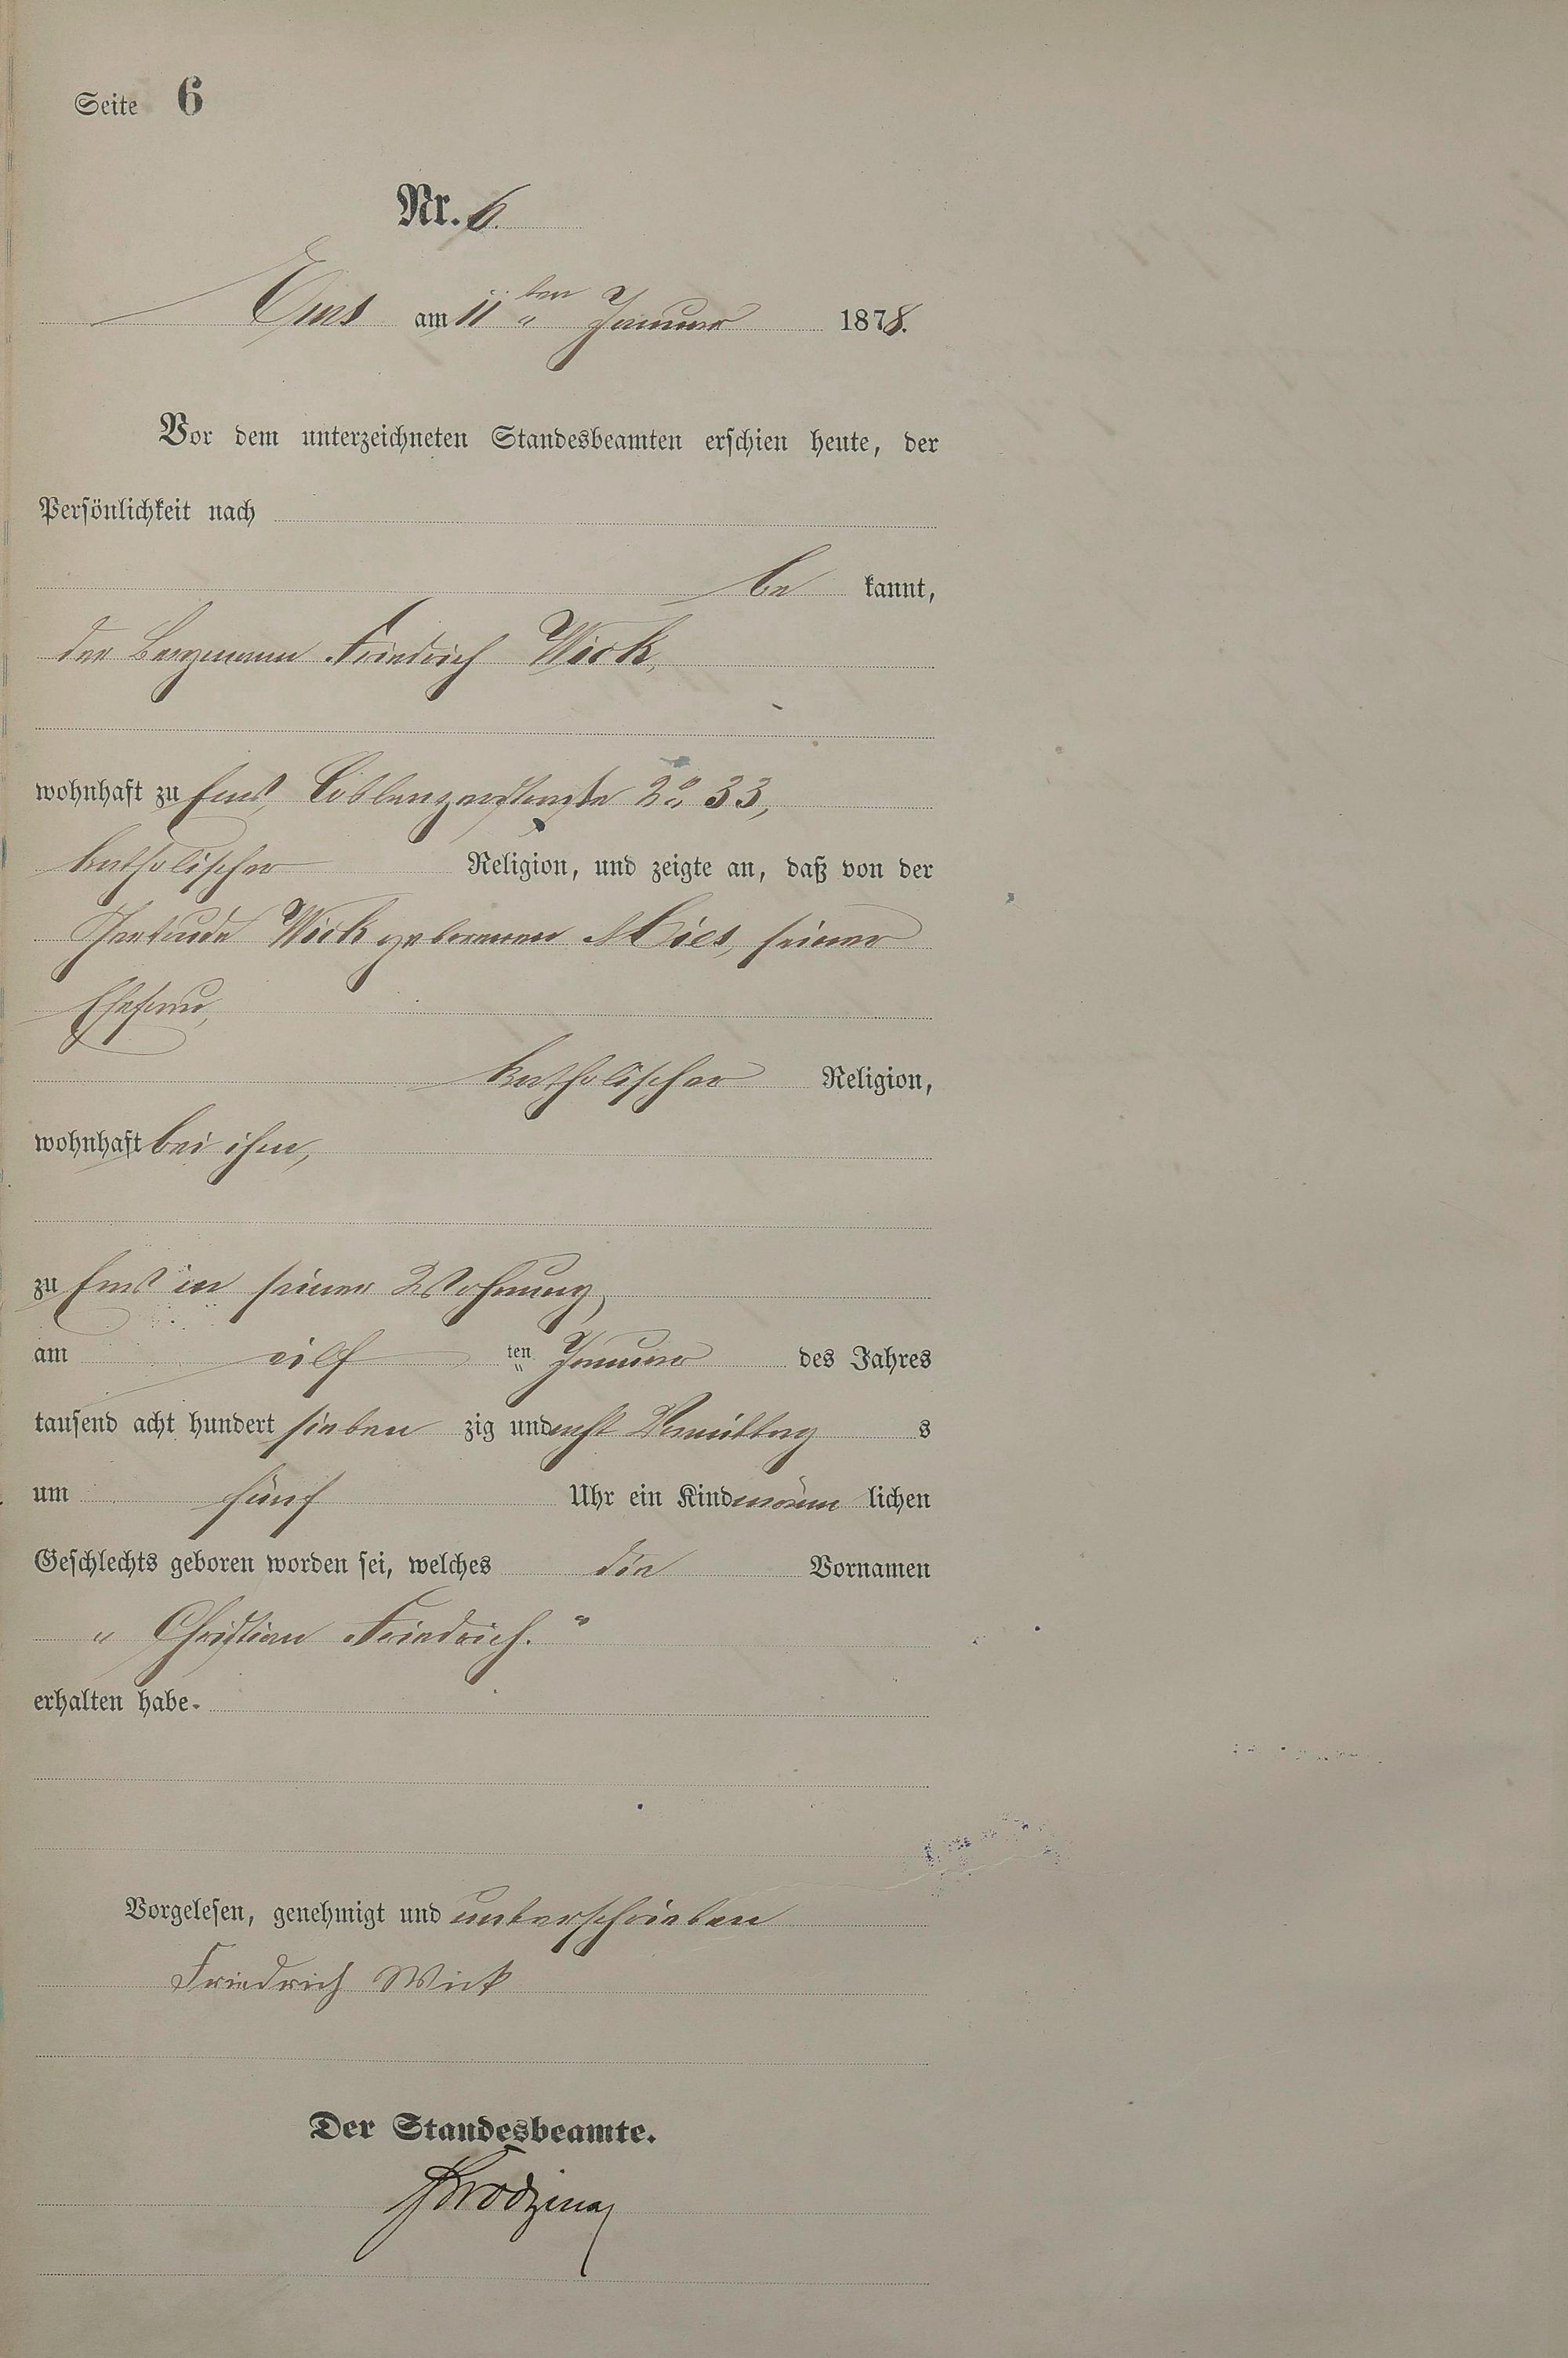 Seite 6
Nr. 6.
Ems am 11ten Januar 1878.
Vor dem unterzeichneten Standesbeamten erschien heute, der
Persönlichkeit nach
be kannt,
der Bergmann Friedrich Wick,
wohnhaft zu Ems, Coblenzerstraße 33,
katholischer Religion, und zeigte an, daß von der
Wick geborenen Mies, seiner
Ehefrau,
katholischer Religion,
wohnhaft bei ihm,
zu Ems in seiner Wohnung,
am eilf ten Januar des Jahres
tausend acht hundert sieben zig und acht Vormittag s
um fünf Uhr ein Kind männ lichen
Geschlechts geboren worden sei, welches die Vornamen
„Christian Friedrich.“
erhalten habe.
Vorgelesen, genehmigt und unterschrieben
Friedrich Wick
Der Standesbeamte.